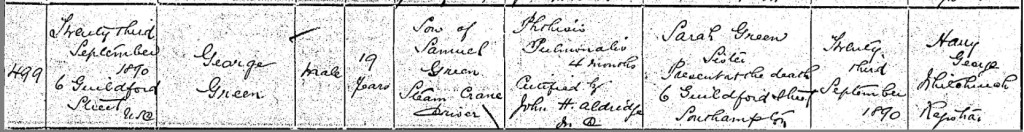 499
Twenty third
September
1890
6 Guildford
Street
George
Green
Male
19
Years
Son of
Samuel
Green
Steam Crane
Driver
Phthisis
Pulmonalis
4 months
Certified by
John H Aldridge
Sarah Green
Sister
Present at the death
6 Guildford Street
Southampton
Twenty
third
September
1890
Harry
George
Whitchurch
Registrar